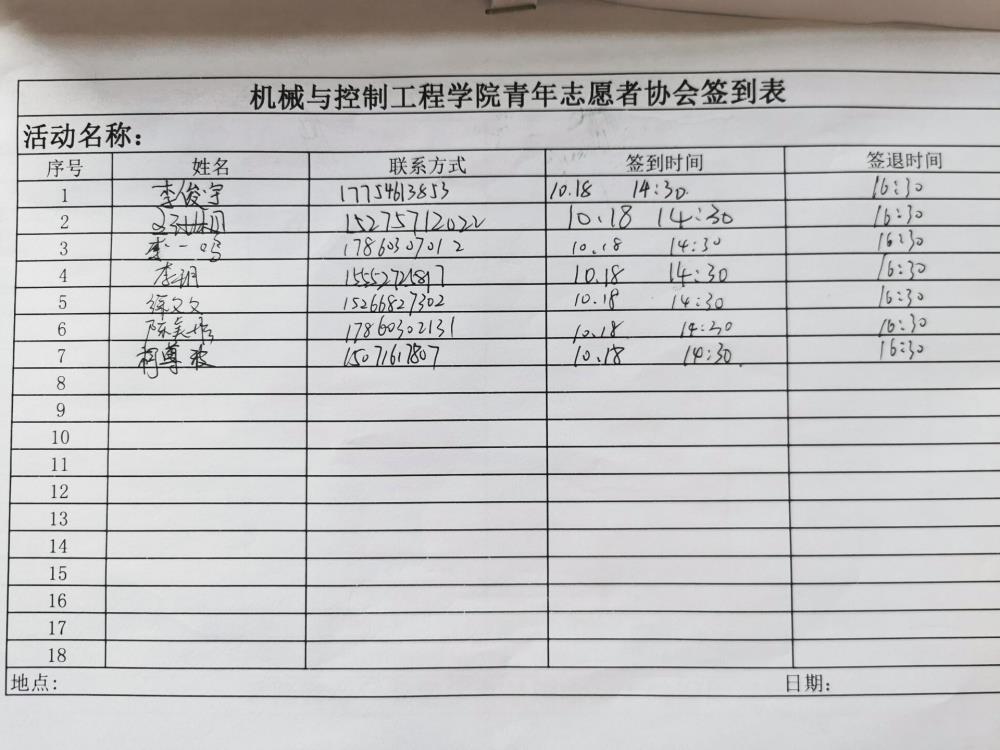 机械与控制工程学院青年志愿者协会签到表
活动名称：
序号 姓名 联系方式 签到时间 签退时间
1 李俊宇 17754613853 10.18 14:30 16:30
2 15275712022 10.18 14:30 16:30
3 李一鸣 17860307012 10.18 14:30 16:30
4 李玥 15552721817 10.18 14:30 16:30
5 徐文文 15266827302 10.18 14:30 16:30
6 17860302131 10.18 14:30 16:30
7 柯尊波 15071617807 10.18 14:30 16:30
8
9
10
11
12
13
14
15
16
17
18
地点： 日期：